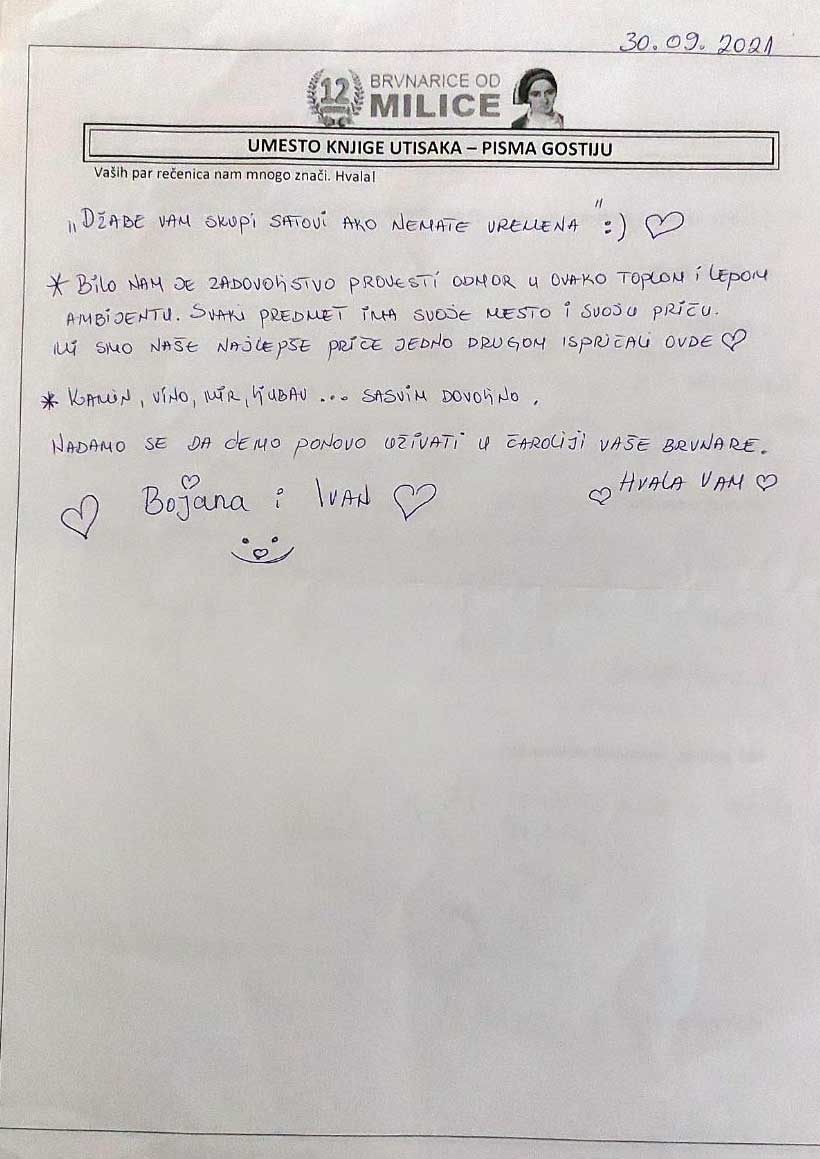 30.09.2021
12
BRVNARICE OD
MILICE
UMESTO KNJIGE UTISAKA – PISMA GOSTIJU
Vaših par rečenica nam mnogo znači. Hvala!
„DŽABE VAM SKUPI SATOVI AKO NEMATE VREMENA" :) ♡
* BILO NAM JE ZADOVOLJSTVO PROVESTI ODMOR U OVAKO TOPLOM I LEPOM
AMBIJENTU. SVAKI PREDMET IMA SVOJE MESTO I SVOJU PRIČU.
MI SMO NAŠE NAJLEPŠE PRIČE JEDNO DRUGOM ISPRIČALI OVDE ♡
* KAMIN, VINO, MIR, LJUBAV ... SASVIM DOVOLJNO.
NADAMO SE DA ĆEMO PONOVO UŽIVATI U ČAROLIJI VAŠE BRVNARE.
♡ Bojana i IVAN ♡
♡ HVALA VAM ♡